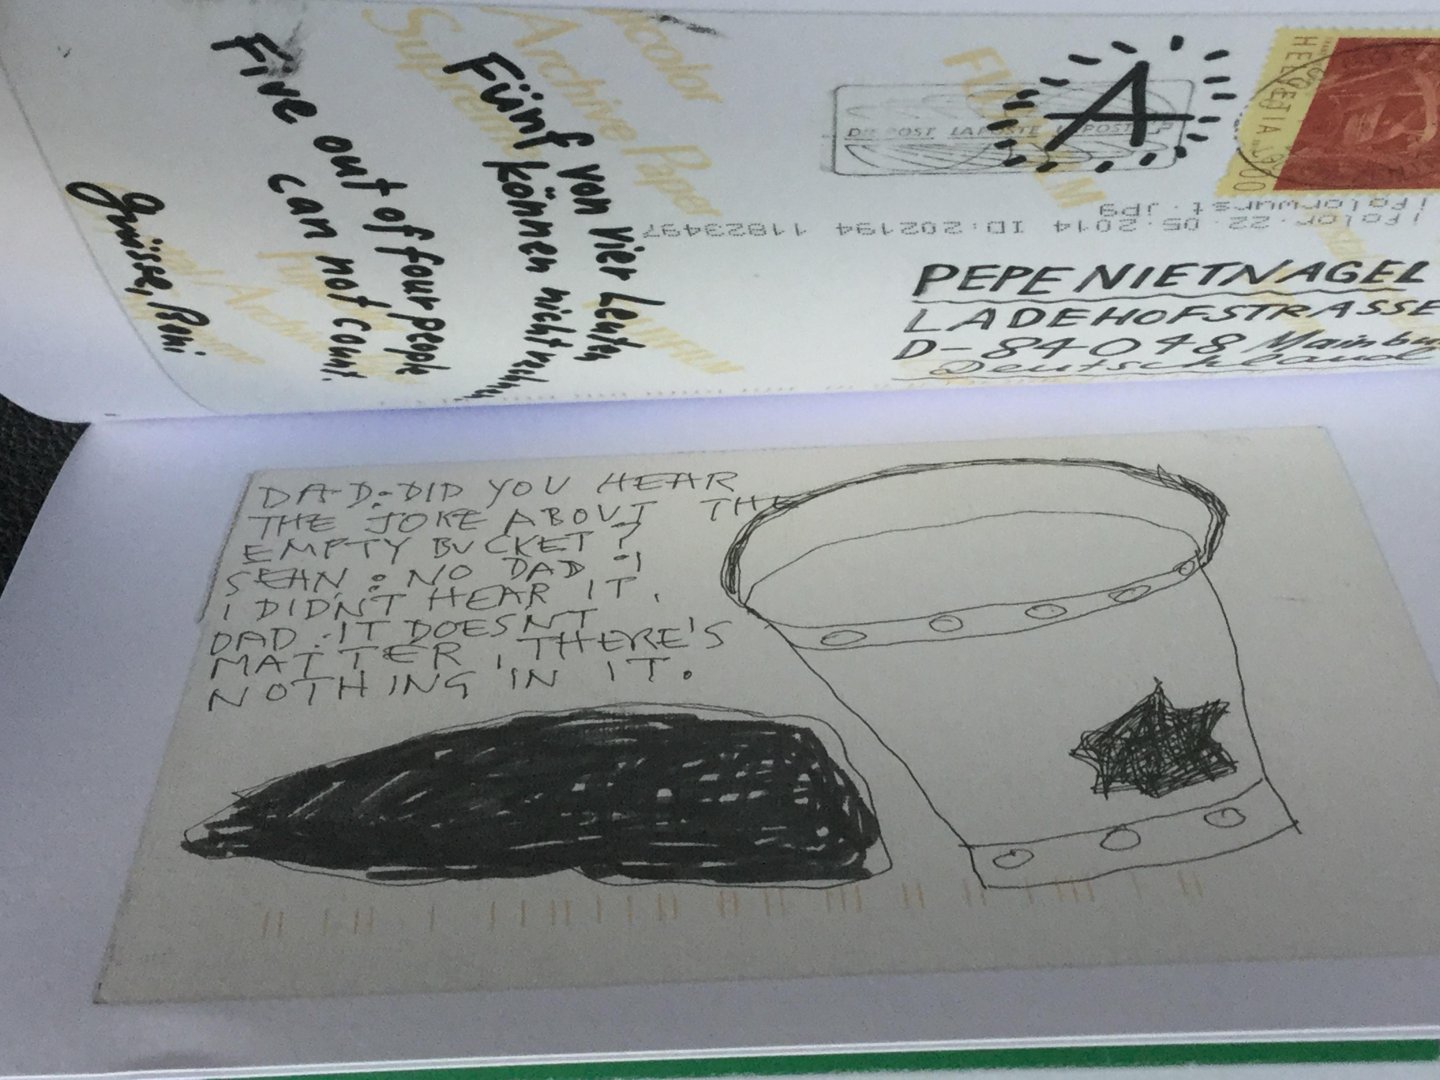 Five out of four people
can not count.
Fünf von vier Leuten
können nicht
Grüsse,
color
Archive Paper
Supreme
FUJIFILM
A
DIE POST LA POSTE LA POSTA
HELVETIA
900
ifolor.22.05.2014 ID:202194 11823497
ifolorwurst.jpg
PEPE NIETNAGEL
LADEHOFSTRASSE
D-84048 Mainbu
Deutschland
DAD:DID YOU HEAR
THE JOKE ABOUT THE
EMPTY BUCKET?
SEAN: NO DAD!
I DIDN'T HEAR IT.
DAD:IT DOESN'T
MATTER, THERE'S
NOTHING IN IT.